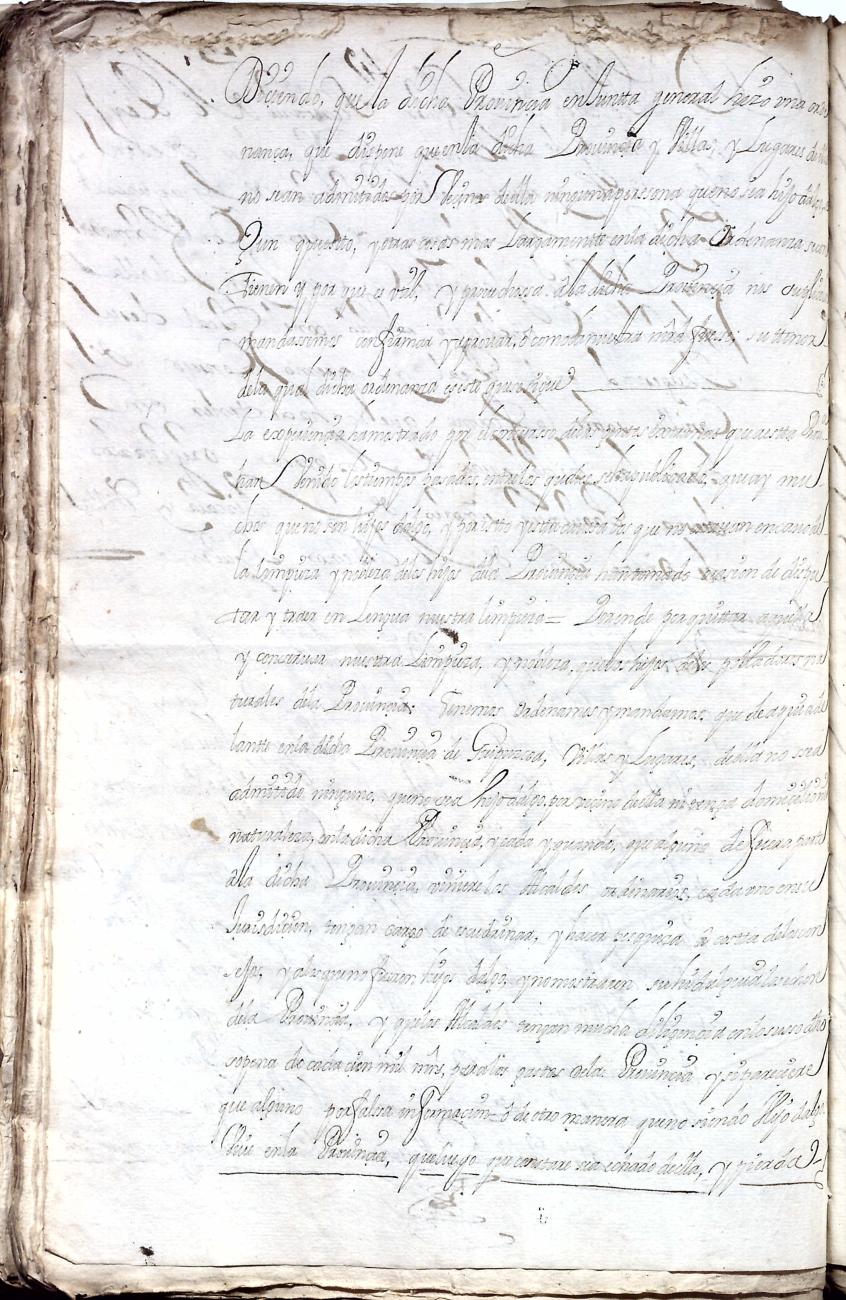 Diçiendo, que la dicha Provinçia en Junta general hizo una orde
nança, que dispone que en la dicha Provinçia y Villas, y Lugares de
no sean admitidos por Veçinos de ella ninguna persona que no sea hijo dalgo,
y otras cosas mas Largamente en la dicha Ordenanza se con
tienen y por que es util, y provechossa a la dicha Provinçia nos suplica
mandassemos confirmar y aprovar, o como la nuestra mrd fuese, su tenor
de la qual dicha ordenanza es este que se sigue
La experiençia ha mostrado por el concurso de las gentes estrañas que a esta Prov
han Venido los tiempos pasados, entre los quales se ha publicado, que ay mu
chos que no son hijos dalgo, y por esto y estra que no en caso de
la limpieza y nobleza de los hijos de la Provinçia han tomado ocasion de dispu
tar y traer en Lengua nuestra limpieza = Porende por quittar aquella
y conservar nuestra Limpieza, y nobleza, que los hijos de los pobladores na
turales de la Provinçia: tenemos Ordenamos y mandamos, que de aqui ad
lante en la dicha Provinçia de Guipuzcoa, Villas y Lugares, de ella no sea
admitido ninguno, que no sea hijo dalgo, por veçino de ella ni tenga domiçilio ni
naturaleza, en la dicha Provinçia, y cada y quando, que alguno de fuera parte
a la dicha Provinçia, viniere los Alcaldes ordinarios, cada uno en su
Jurisdiçion, tengan cargo de escudriñar, y hacer pesquiza a costta de los con
sejos, y a los que no fueren hijos dalgo, y no mostraren su hidalguia los echen
de la Provinçia, y que los Alcaldes tengan mucha diligençia en lo susodho
sopena de cada cien mil mrs, para los gastos de la Provinçia y si pareçiere
que alguno por falssa informaçion o de otra manera que no siendo Hijo dalgo
Vive en la Provinçia, que luego que constare sea echado de ella, y pierda